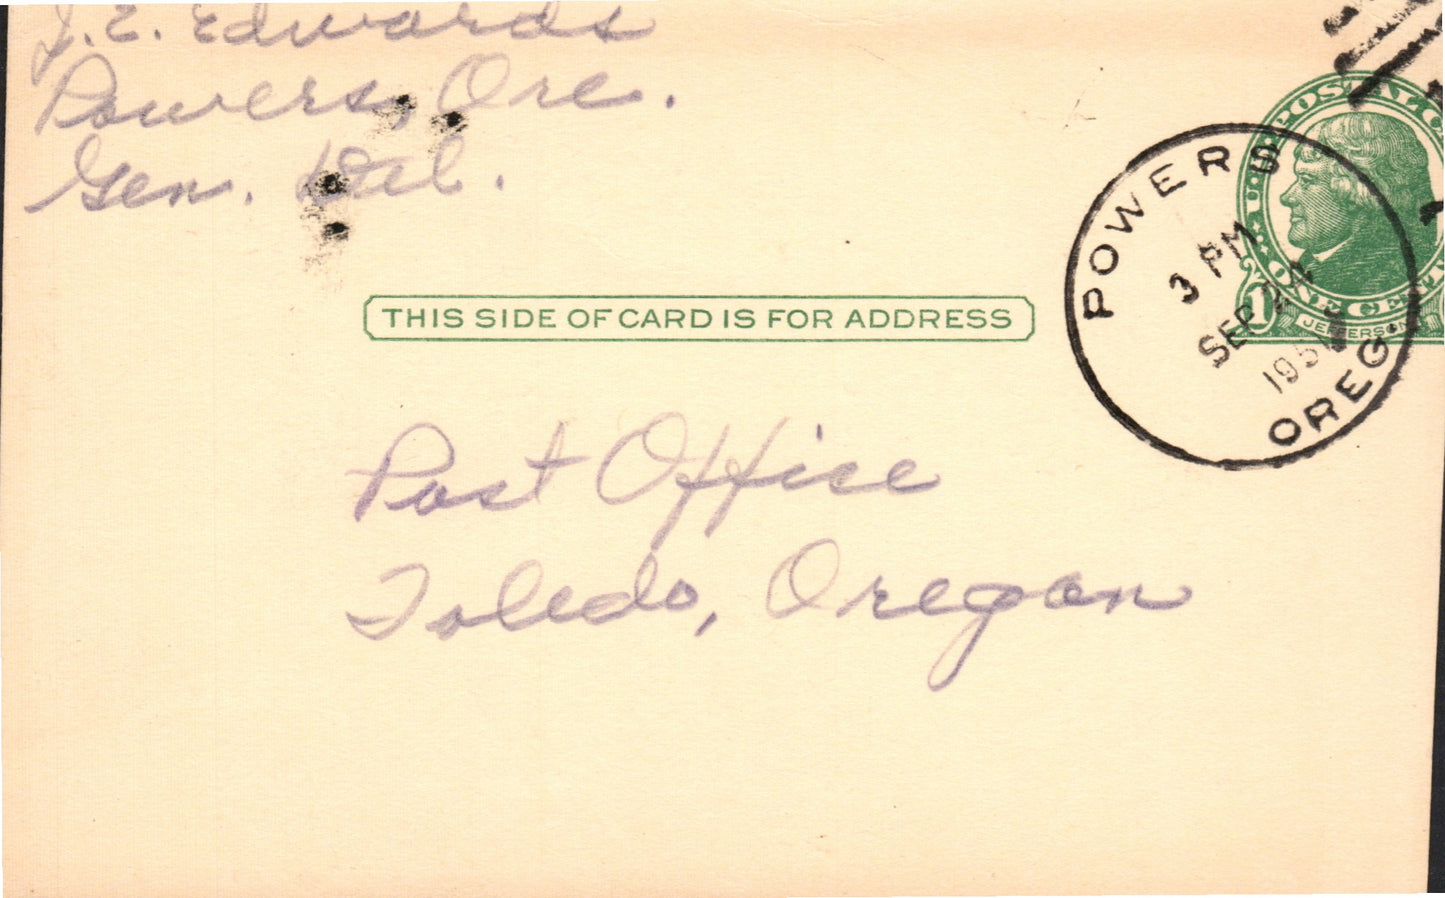 J. E. Edwards
Powers, Ore.
Gen. Del.
POWERS
OREG.
3 PM
SEP 22
U.S. POSTAL
ONE CENT
1
JEFFERSON
THIS SIDE OF CARD IS FOR ADDRESS
Post Office
Toledo, Oregon